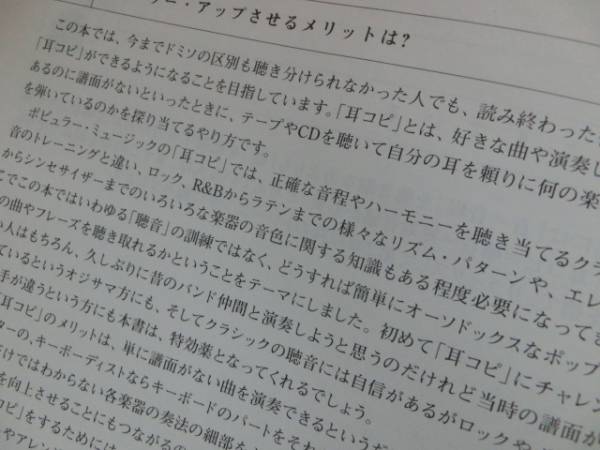 ー・アップさせるメリットは？
この本では、今までドミソの区別も聴き分けられなかった人でも、読み終わった
「耳コピ」ができるようになることを目指しています。「耳コピ」とは、好きな曲や演奏し
あるのに譜面がないといったときに、テープやCDを聴いて自分の耳を頼りに何の楽
を弾いているのかを探り当てるやり方です。
ポピュラー・ミュージックの「耳コピ」では、正確な音程やハーモニーを聴き当てるクラ
音のトレーニングと違い、ロック、R&Bからラテンまでの様々なリズム・パターンや、エレ
からシンセサイザーまでのいろいろな楽器の音色に関する知識もある程度必要になってき
でこの本ではいわゆる「聴音」の訓練ではなく、どうすれば簡単にオーソドックスなポップ
の曲やフレーズを聴き取れるかということをテーマにしました。初めて「耳コピ」にチャレン
い人はもちろん、久しぶりに昔のバンド仲間と演奏しようと思うのだけれど当時の譜面が
ているというオジサマ方にも、そしてクラシックの聴音には自信があるがロックや
手が違うという方にも本書は、特効薬となってくれるでしょう。
「耳コピ」のメリットは、単に譜面がない曲を演奏できるというだ
ターの、キーボーディストならキーボードのパートをそれ
だけではわからない各楽器の奏法の細部を
を向上させることにもつながるの
コピ」をするためには
やアレン